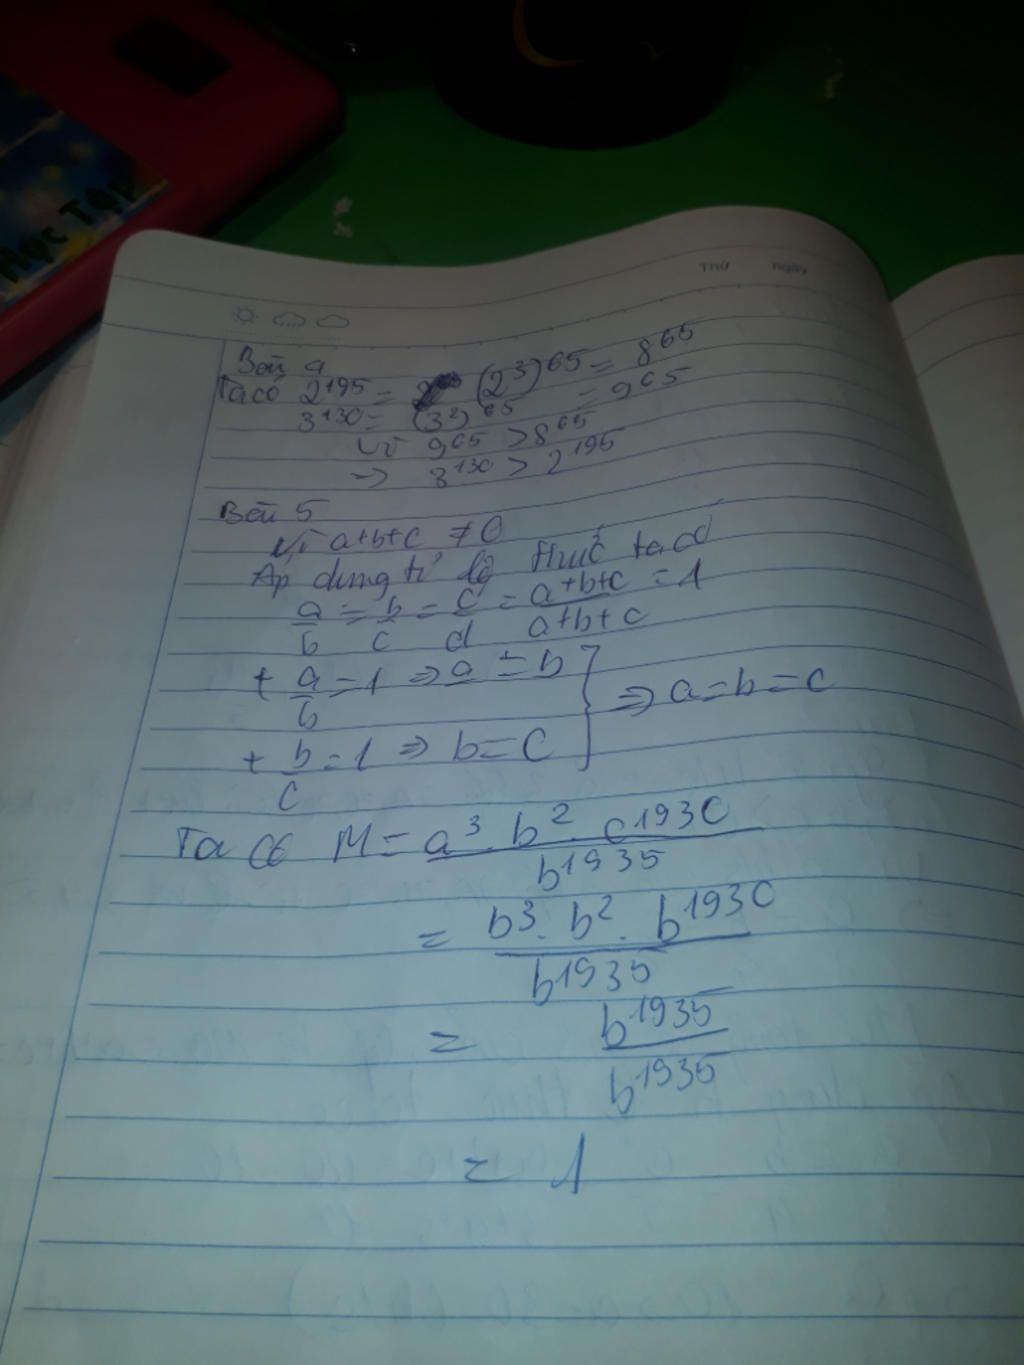 Học Tập
Thứ ngày
Bài 4
Ta có 2^195 = (2^3)^65 = 8^65
3^130 = (3^2)^65 = 9^65
Vì 9^65 > 8^65
=> 3^130 > 2^195
Bài 5
Vì a+b+c ≠ 0
Áp dụng tỉ lệ thức ta có
a/b = b/c = c/d = a+b+c/a+b+c = 1
+ a/b = 1 => a = b
=> a=b=c
+ b/c = 1 => b=c
Ta có M = a^3 . b^2 . c^1930/b^1935
= b^3 . b^2 . b^1930/b^1935
= b^1935/b^1935
= 1